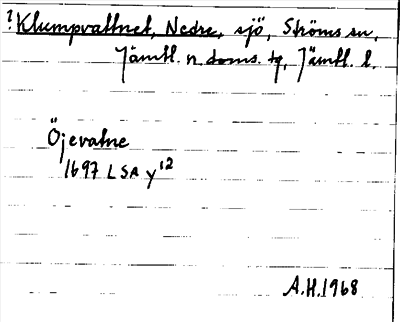 ? Klumpvattnet, Nedre, sjö, Ströms sn,
Jämtl. n. doms. tg, Jämtl. l.
Öjevatne
1697 LSA y12
A.H. 1968